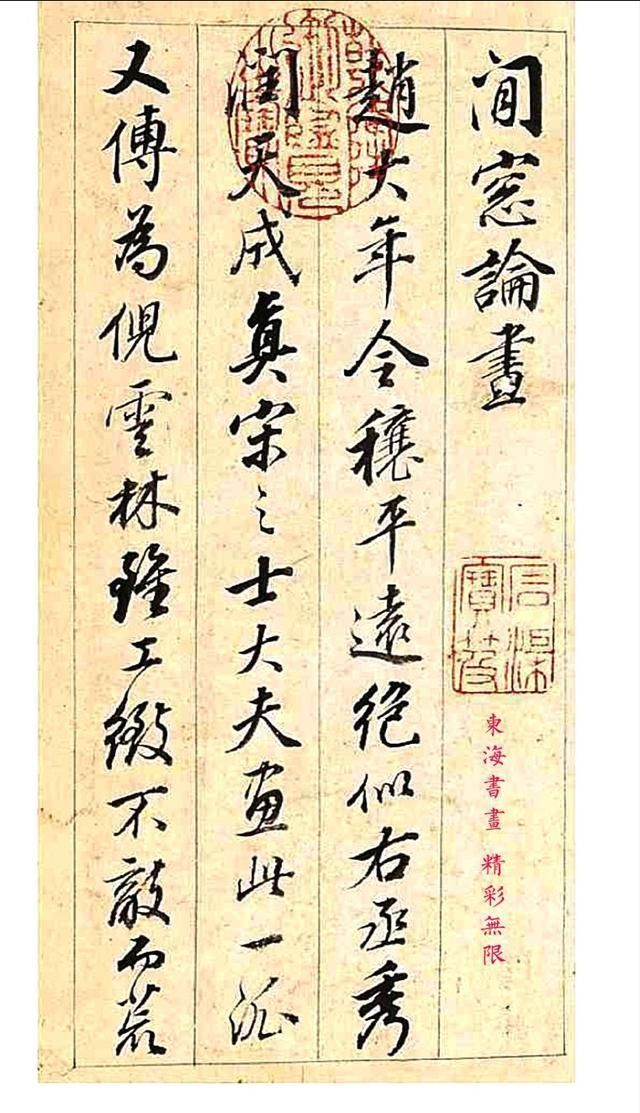 閒窓論畫
趙大年令穰平遠絕似右丞秀
潤天成眞宋之士大夫画此一派
又傳為倪雲林雖工緻不敵而荒
東海書畫 精彩無限